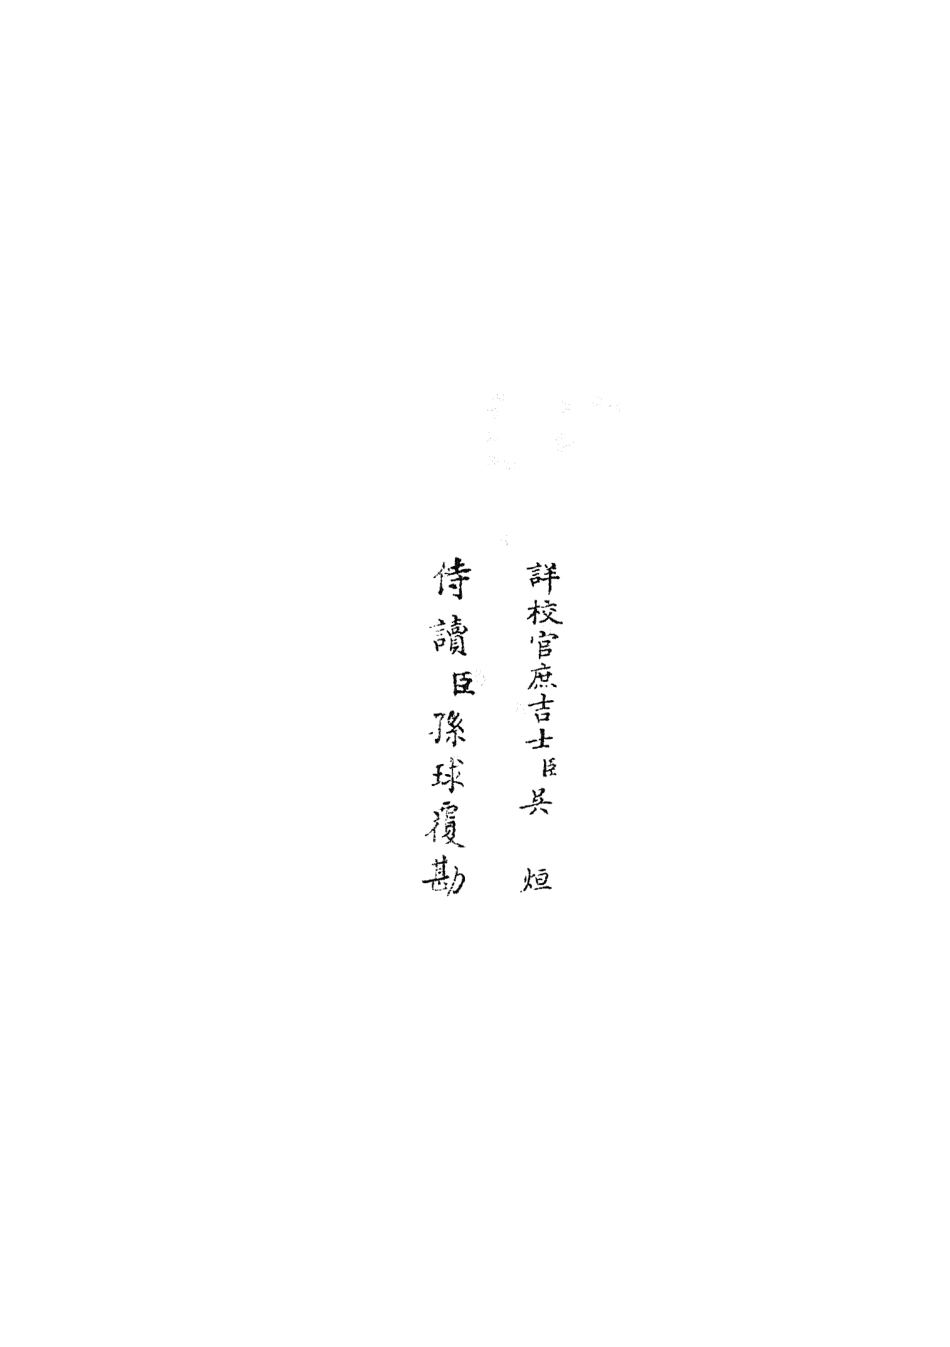 詳校官庶吉士臣吳烜
侍讀臣孫球覆勘